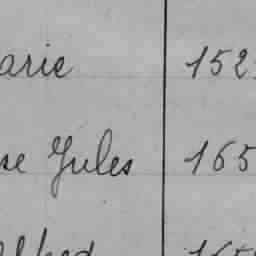 arie 152
se Jules 165